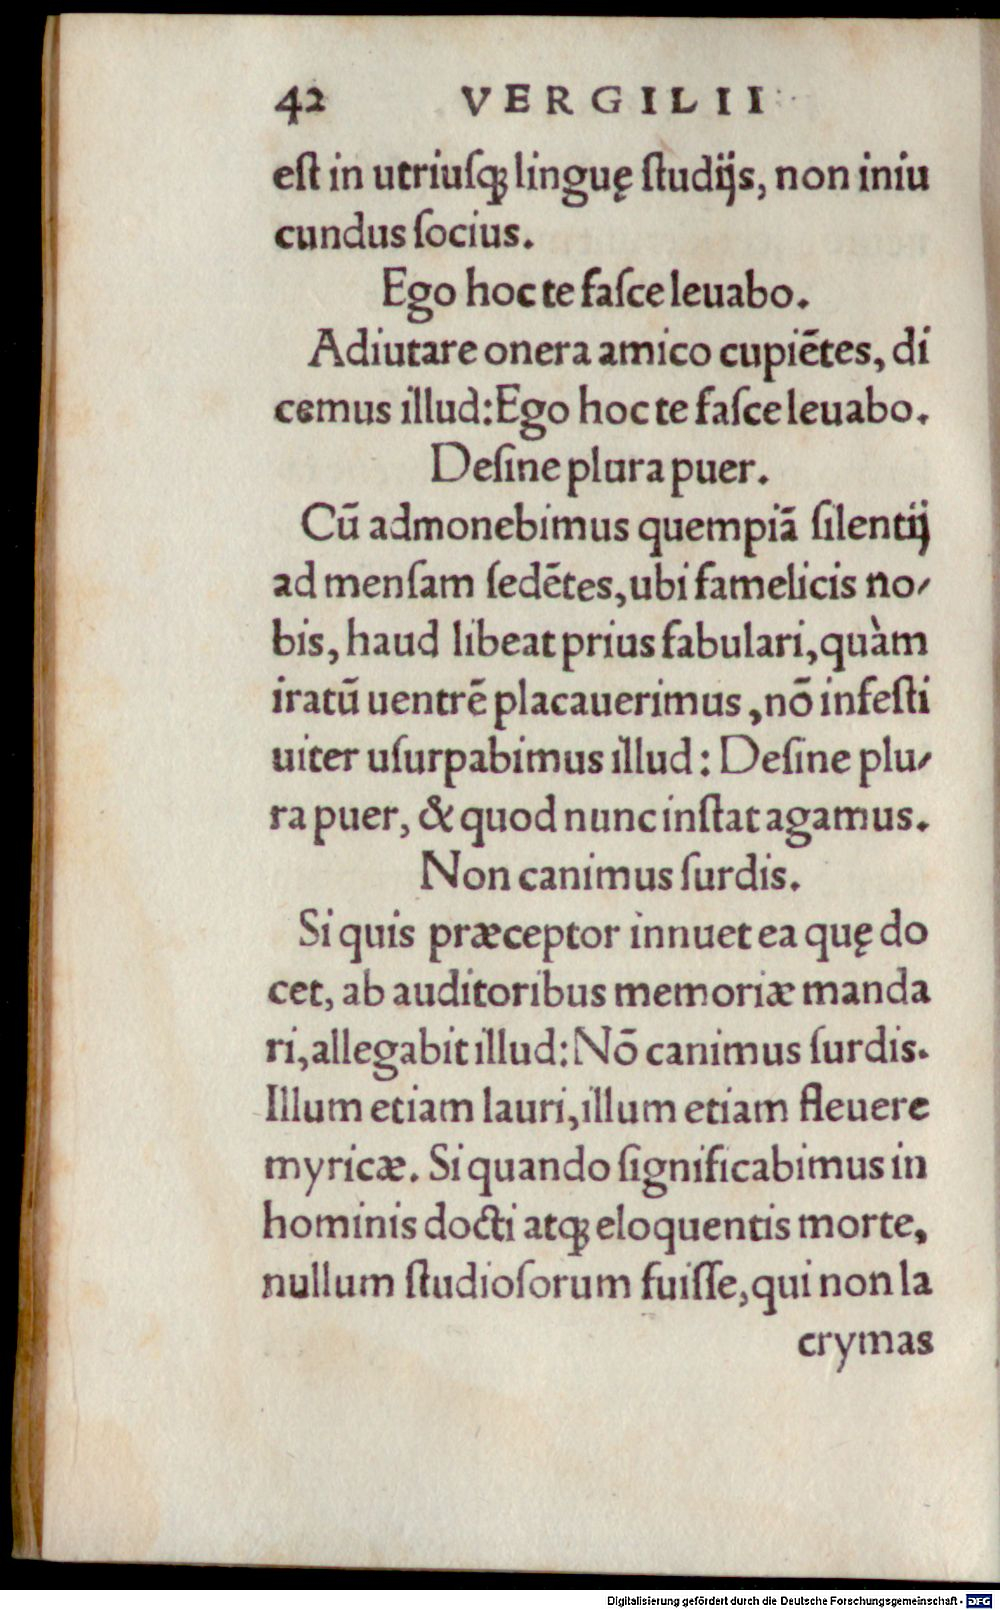 42 VERGILII
eſt in utriuſq; linguę ſtudijs, non iniu
cundus ſocius.
Ego hoc te faſce leuabo.
Adiutare onera amico cupiētes, di
cemus illud: Ego hoc te faſce leuabo.
Deſine plura puer.
Cū admonebimus quempiā ſilentij
ad menſam ſedētes, ubi famelicis no-
bis, haud libeat prius fabulari, quàm
iratū uentrē placauerimus, nō infeſti
uiter uſurpabimus illud: Deſine plu-
ra puer, & quod nunc inſtat agamus.
Non canimus ſurdis.
Si quis præceptor innuet ea quę do
cet, ab auditoribus memoriæ manda
ri, allegabit illud: Nō canimus ſurdis.
Illum etiam lauri, illum etiam fleuere
myricæ. Si quando ſignificabimus in
hominis docti atq; eloquentis morte,
nullum ſtudioſorum fuiſſe, qui non la
crymas
Digitalisierung gefördert durch die Deutsche Forschungsgemeinschaft - DFG